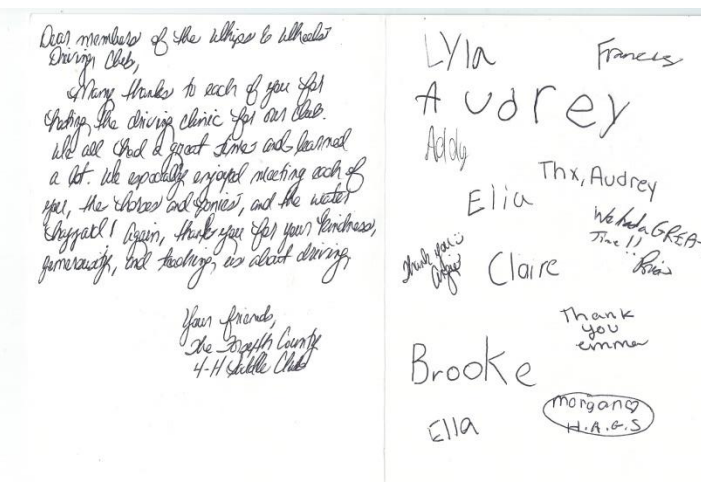 Dear members of the Whips & Wheels
Driving Club,
Many thanks to each of you for
hosting the driving clinic for our club.
We all had a great time and learned
a lot. We especially enjoyed meeting each of
you, the horses and ponies, and the water
Again, thank you for your kindness,
generosity, and teaching us about driving.
Your friends,
The Forsyth County
4-H Saddle Club
Lyla
Frances
Audrey
Addy
Thx, Audrey
Elia
We had a GREA
Time!!
Thank you
Angie
Claire
Thank
you
emma
Brooke
morgan♡
H.A.G.S
Ella